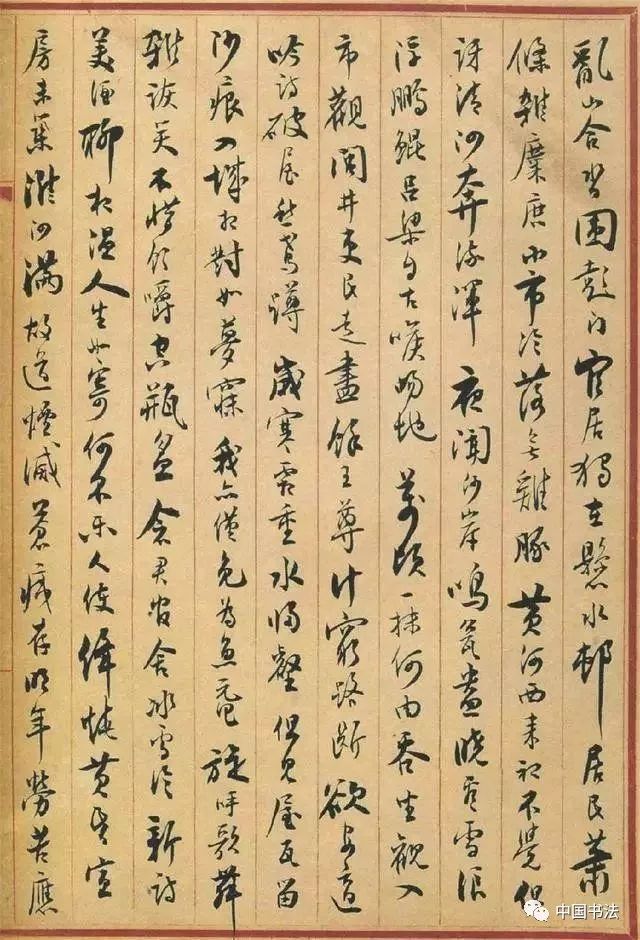 亂山合沓圍彭門官居獨在懸水邨居民蕭
條雜麋鹿小市冷落無雞豚黃河西來初不覺但
訝清泗奔流渾夜聞沙岸鳴瓮盎曉看雪浪
浮鵬鯤呂梁自古喉吻地萬頃一抹何由吞坐觀入
市觀閭井吏民走盡餘王尊計窮路斷欲安適
吟詩破屋愁鳶蹲歲寒霜重水歸壑但見屋瓦留
沙痕入城相對如夢寐我亦僅免為魚黿旋呼歌舞
雜詼笑不惜飲嚼空瓶盆念君官舍冰雪冷新詩
美酒聊相溫人生如寄何不樂任使絳黃昏宣
房未築淮泗滿故道堙滅蒼痍存明年勞苦應
中国书法